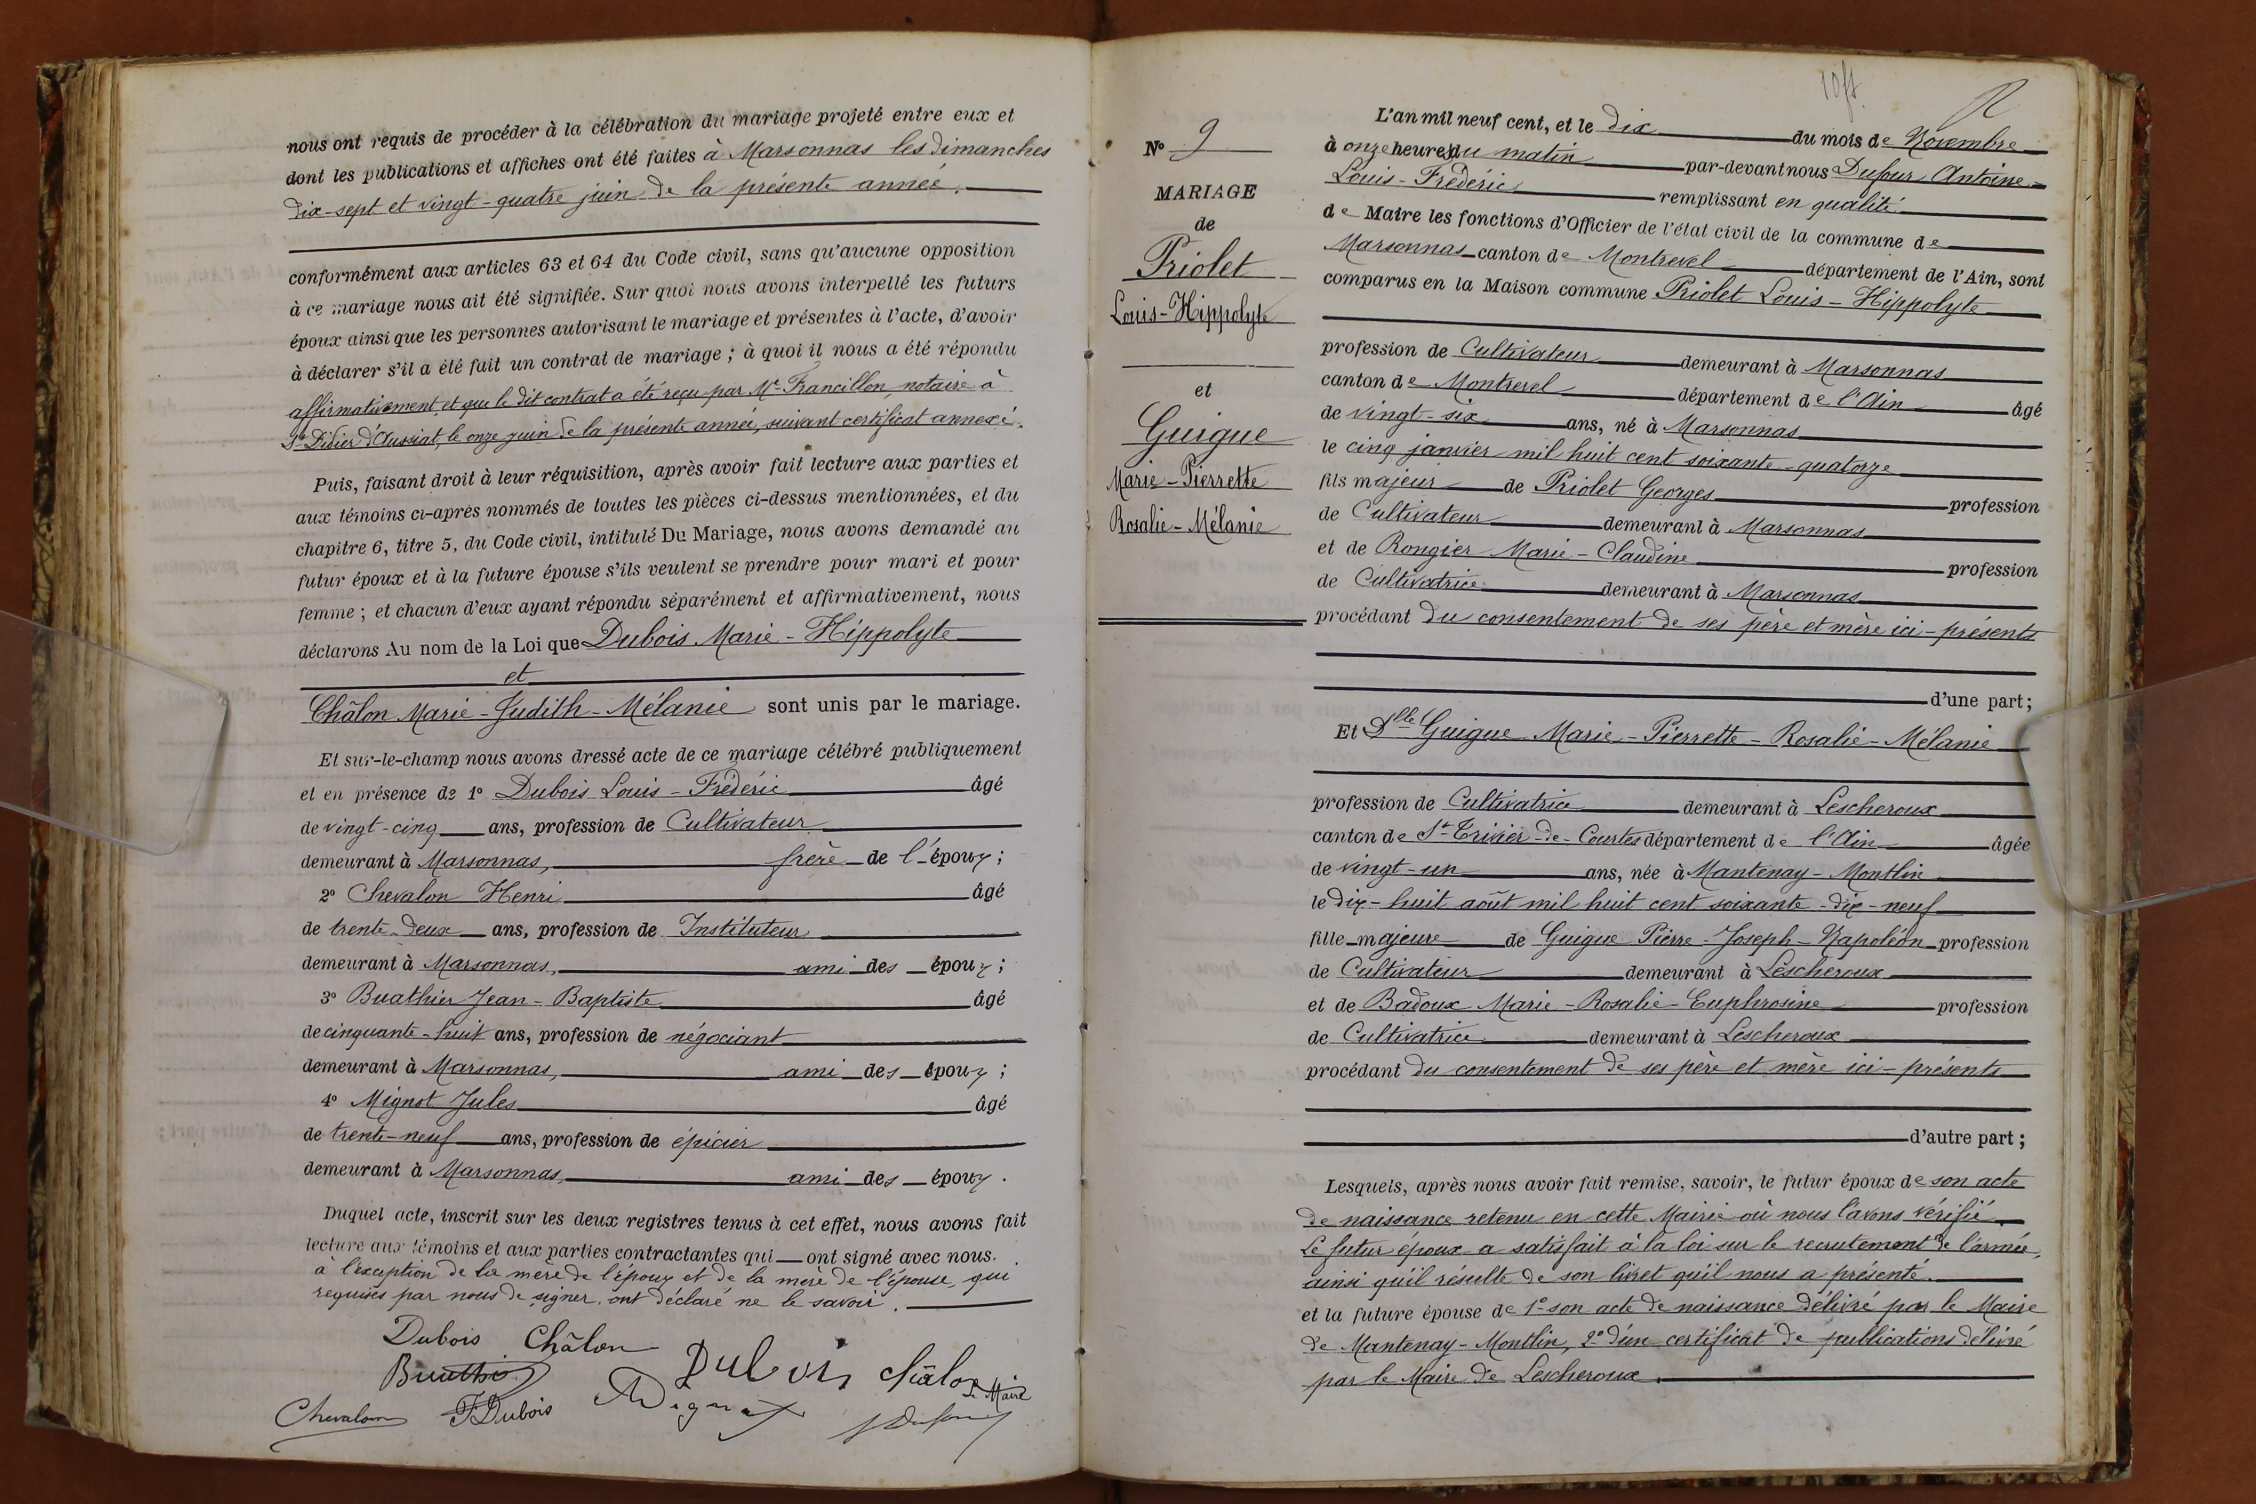 nous ont requis de procéder à la célébration du mariage projeté entre eux et
dont les publications et affiches ont été faites à Marsonnas les dimanches
dix-sept et vingt-quatre juin de la présente année.
conformément aux articles 63 et 64 du Code civil, sans qu'aucune opposition
à ce mariage nous ait été signifiée. Sur quoi nous avons interpellé les futurs
époux ainsi que les personnes autorisant le mariage et présentes à l'acte, d'avoir
à déclarer s'il a été fait un contrat de mariage ; à quoi il nous a été répondu
affirmativement et que le dit contrat a été reçu par Me Francillon, notaire à
St Didier d'Aussiat, le onze juin de la présente année, suivant certificat annexé.
Puis, faisant droit à leur réquisition, après avoir fait lecture aux parties et
aux témoins ci-après nommés de toutes les pièces ci-dessus mentionnées, et du
chapitre 6, titre 5, du Code civil, intitulé Du Mariage, nous avons demandé au
futur époux et à la future épouse s'ils veulent se prendre pour mari et pour
femme ; et chacun d'eux ayant répondu séparément et affirmativement, nous
déclarons Au nom de la Loi que Dubois Marie-Hippolyte
et
Châlon Marie-Judith-Mélanie sont unis par le mariage.
Et sur-le-champ nous avons dressé acte de ce mariage célébré publiquement
et en présence de 1° Dubois Louis-Frédéric âgé
de vingt-cinq ans, profession de Cultivateur
demeurant à Marsonnas, frère de l'époux ;
2° Chevalon Henri âgé
de trente-deux ans, profession de Instituteur
demeurant à Marsonnas, ami des époux ;
3° Buathier Jean-Baptiste âgé
de cinquante-huit ans, profession de négociant
demeurant à Marsonnas, ami des époux ;
4° Mignot Jules âgé
de trente-neuf ans, profession de épicier
demeurant à Marsonnas, ami des époux.
Duquel acte, inscrit sur les deux registres tenus à cet effet, nous avons fait
lecture aux témoins et aux parties contractantes qui ont signé avec nous.
à l'exception de la mère de l'époux et de la mère de l'épouse, qui
requises par nous de signer, ont déclaré ne le savoir.
Dubois Châlon
Dubois Châlon
Le Maire
Chevalon FDubois Mignot
N° 9
MARIAGE
de
Priolet
Louis-Hippolyte
et
Guigue
Marie-Pierrette
Rosalie-Mélanie
L'an mil neuf cent, et le dix du mois de Novembre
à onze heures du matin par-devant nous Dufour Antoine-
Louis-Frédéric remplissant en qualité
de Maire les fonctions d'Officier de l'état civil de la commune de
Marsonnas canton de Montrevel département de l'Ain, sont
comparus en la Maison commune Priolet Louis-Hippolyte
profession de Cultivateur demeurant à Marsonnas
canton de Montrevel département de l'Ain âgé
de vingt-six ans, né à Marsonnas
le cinq janvier mil huit cent soixante-quatorze
fils majeur de Priolet Georges profession
de Cultivateur demeurant à Marsonnas
et de Rongier Marie-Claudine profession
de Cultivatrice demeurant à Marsonnas
procédant du consentement de ses père et mère ici-présents
d'une part ;
Et Dlle Guigue Marie-Pierrette-Rosalie-Mélanie
profession de Cultivatrice demeurant à Lescheroux
canton de St-Trivier-de-Courtes département de l'Ain âgée
de vingt-un ans, née à Mantenay-Montlin
le dix-huit août mil huit cent soixante-dix-neuf
fille majeure de Guigue Pierre-Joseph-Napoléon profession
de Cultivateur demeurant à Lescheroux
et de Badoux Marie-Rosalie-Euphrosine profession
de Cultivatrice demeurant à Lescheroux
procédant du consentement de ses père et mère ici-présents
d'autre part ;
Lesquels, après nous avoir fait remise, savoir, le futur époux de son acte
de naissance retenu en cette Mairie où nous l'avons vérifié.
Le futur époux a satisfait à la loi sur le recrutement de l'armée,
ainsi qu'il résulte de son livret qu'il nous a présenté.
et la future épouse de 1° son acte de naissance délivré par le Maire
de Mantenay-Montlin, 2° d'un certificat de publications délivré
par le Maire de Lescheroux.